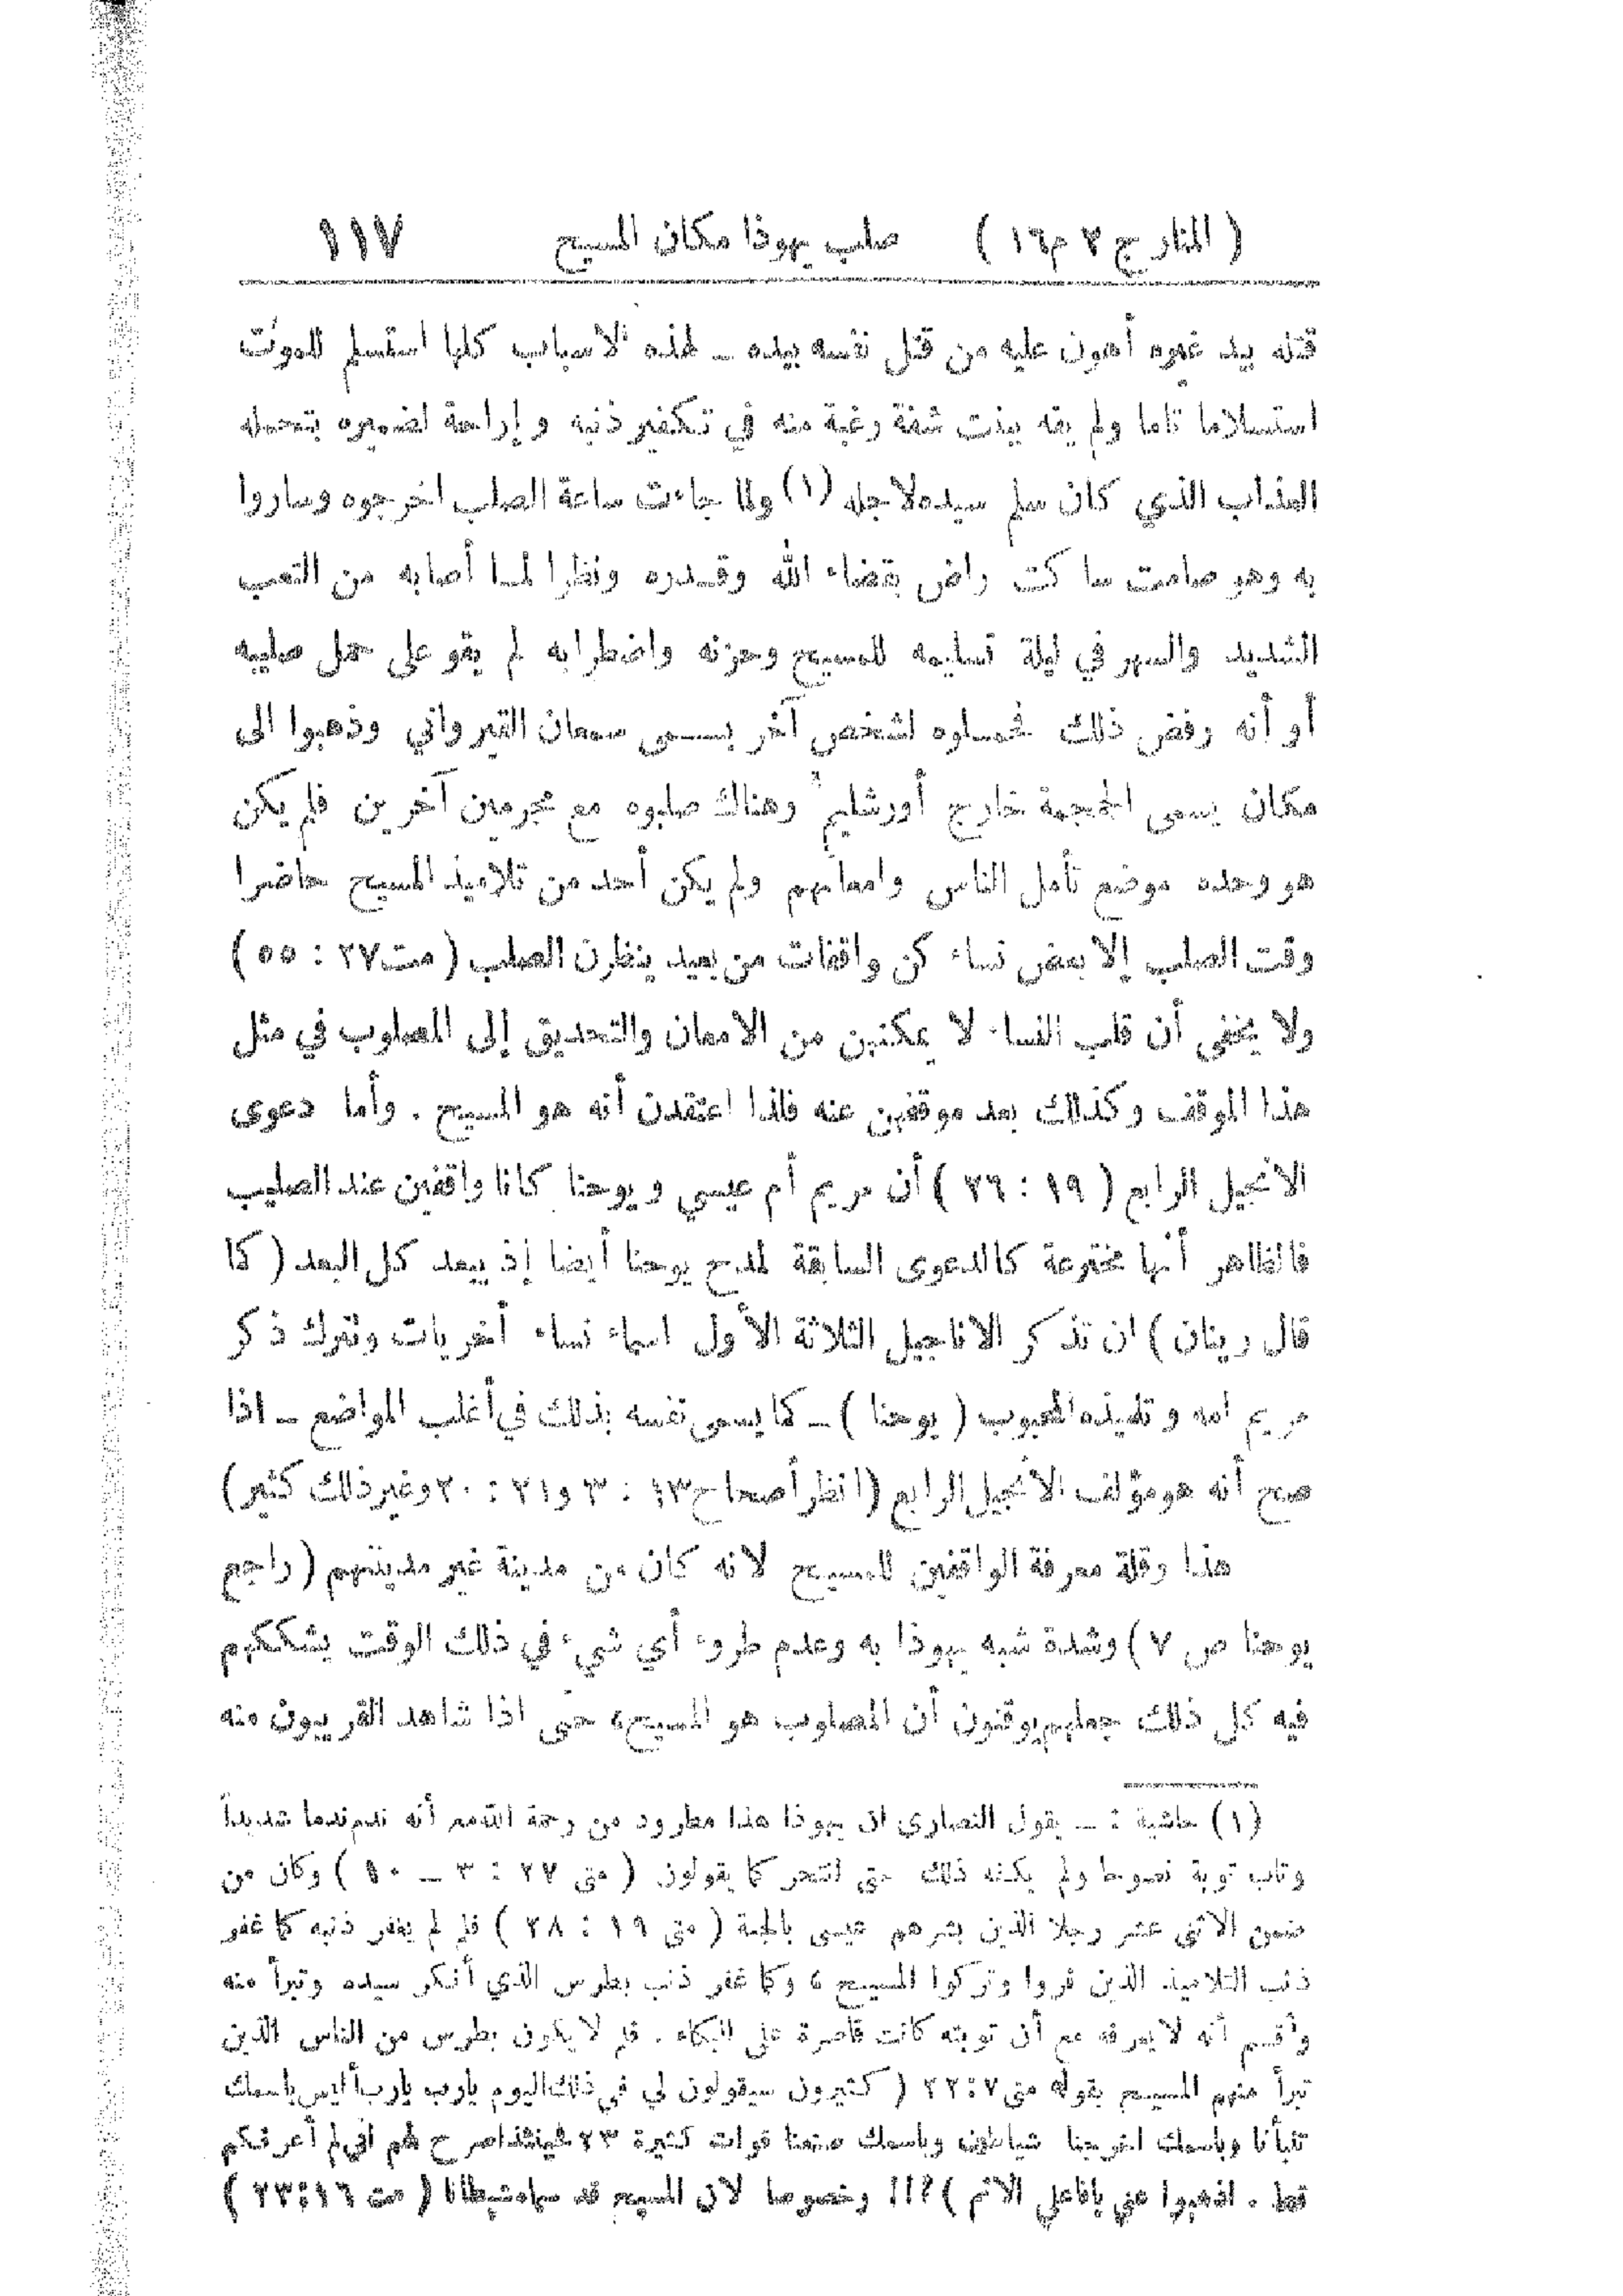 ( المنار ج ٢ م ١٦ ) صلب يهوذا مكان المسيح ١١٧
قتله بيد غيره أهون عليه من قتل نفسه بيده ــ لهذه الاسباب كلها استسلم للموت
استسلاما تاما ولم يفه ببنت شفة رغبة منه في تكفير ذنبه و إراحة لضميره بتحمله
العذاب الذي كان سلم سيده لاجله (١) ولما جاءت ساعة الصلب اخرجوه وساروا
به وهو صامت ساكت راض بقضاء الله وقدره ونظرا لما أصابه من التعب
الشديد والسهر في ليلة تسليمه للمسيح وحزنه واضطرابه لم يقو على حمل صليبه
أو أنه رفض ذلك فحملوه لشخص آخر يسمى سمعان القيرواني وذهبوا الى
مكان يسمى الجمجمة خارج أورشليم وهناك صلبوه مع مجرمين آخرين فلم يكن
هو وحده موضع تأمل الناس وامعانهم ولم يكن أحد من تلاميذ المسيح حاضرا
وقت الصلب إلا بعض نساء كن واقفات من بعيد ينظرن الصلب ( مت ٢٧ : ٥٥ )
ولا يخفى أن قلب النساء لا يمكنهن من الامعان والتحديق إلى المصلوب في مثل
هذا الموقف وكذلك بعد موقفهن عنه فلذا اعتقدن أنه هو المسيح . وأما دعوى
الانجيل الرابع ( ١٩ : ٢٦ ) أن مريم أم عيسى ويوحنا كانا واقفين عند الصليب
فالظاهر أنها مخترعة كالدعوى السابقة لمدح يوحنا أيضا إذ يبعد كل البعد ( كما
قال رينان ) ان تذكر الاناجيل الثلاثة الأول اسماء نساء أخريات وتترك ذكر
مريم امه وتلميذه المحبوب ( يوحنا ) ــ كما يسمى نفسه بذلك في أغلب المواضع ــ اذا
صح أنه هو مؤلف الانجيل الرابع (انظر أصحاح ١٣ : ٢٣ و ٢١ : ٢٠ وغير ذلك كثير)
هذا وقلة معرفة الواقفين للمسيح لانه كان من مدينة غير مدينتهم ( راجع
يوحنا ص ٧ ) وشدة شبه يهوذا به وعدم طروء أي شيء في ذلك الوقت يشككهم
فيه كل ذلك جعلهم يوقنون أن المصلوب هو المسيح، حتى اذا شاهد القريبون منه
(١) حاشية : ــ يقول النصارى ان يهوذا هذا مطرود من رحمة الله مع أنه ندم ندما شديداً
وتاب توبة نصوحا ولم يكفه ذلك حتى انتحر كما يقولون ( متى ٢٧ : ٣ ــ ١٠ ) وكان من
ضمن الاثني عشر رجلا الذين بشرهم عيسى بالجنة ( متى ١٩ : ٢٨ ) فلم لم يغفر ذنبه كما غفر
ذنب التلاميذ الذين فروا وتركوا المسيح ، وكما غفر ذنب بطرس الذي أنكر سيده وتبرأ منه
وأقسم أنه لا يعرفه مع أن توبته كانت قاصرة على البكاء . فلم لا يكون بطرس من الناس الذين
تبرأ منهم المسيح بقوله متى ٧:٢٢ ( كثيرون سيقولون لي في ذلك اليوم يارب يارب أليس باسمك
تنبأنا وباسمك اخرجنا شياطين وباسمك صنعنا قوات كثيرة ٢٣ فحينئذ اصرح لهم اني لم أعرفكم
قط . اذهبوا عني يافاعلي الاثم ) ؟!! وخصوصا لان المسيح قد سماه شيطانا ( مت ١٦ : ٢٣ )